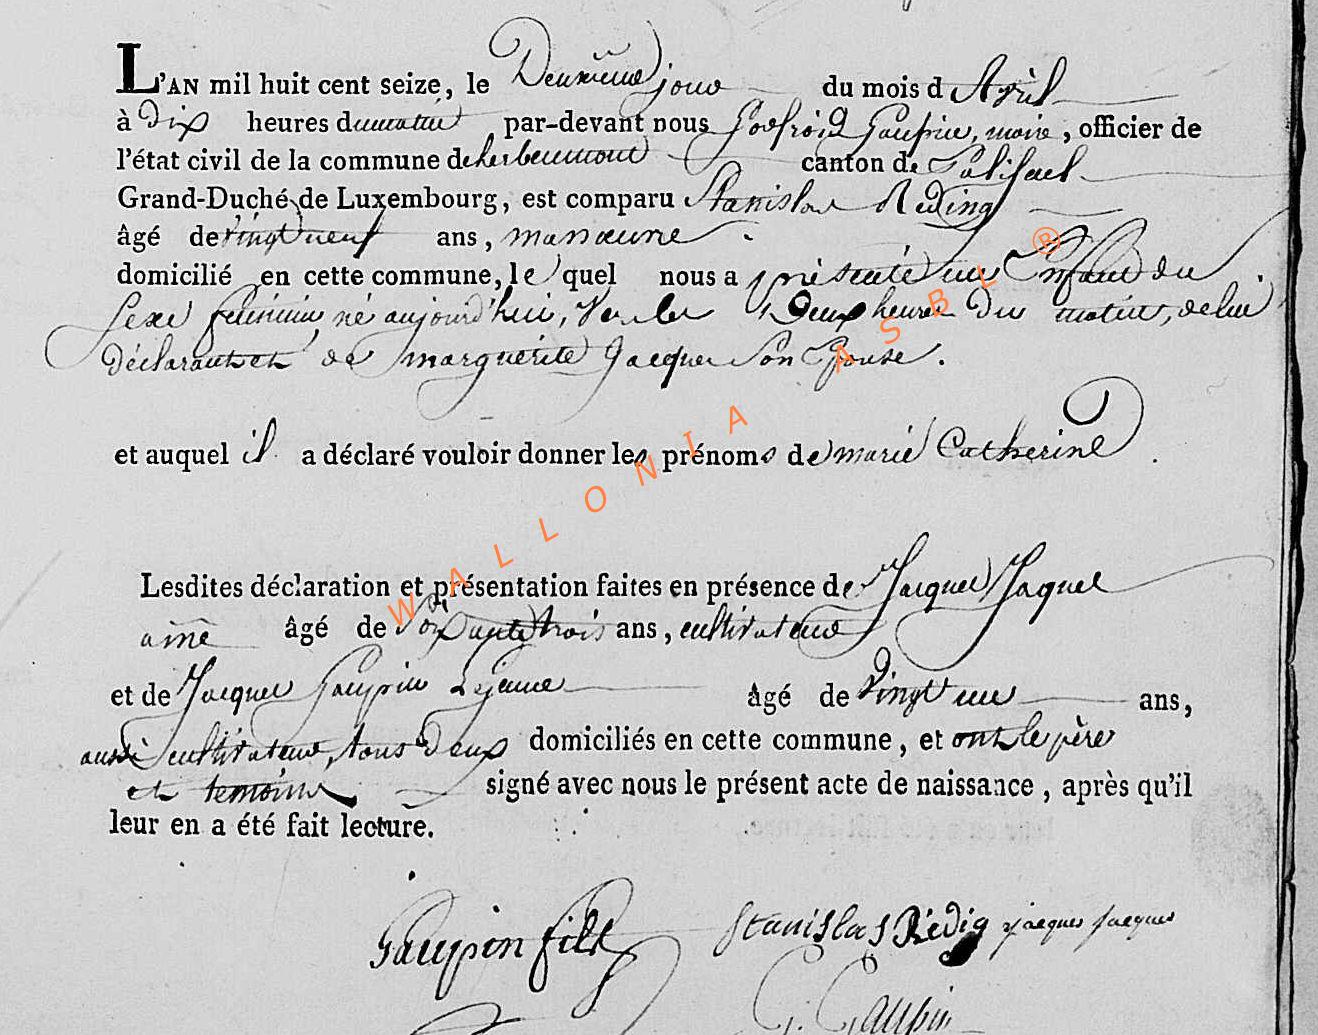 L'AN mil huit cent seize, le Deuxième jour du mois d'Avril
à Dix heures du matin, par-devant nous Godfroid Gaupin, maire, officier de
l'état civil de la commune de herbeumont canton de Paliseul
Grand-Duché de Luxembourg, est comparu Stanislas Reding
âgé de vingt neuf ans, manoeuvre
domicilié en cette commune, le quel nous a présenté un Enfant du
sexe féminin, né aujourd'hui, vers les Deux heures du matin, de lui
déclarant et de marguerite Jacques Son Epouse.
et auquel il a déclaré vouloir donner les prénoms de marie Catherine
Lesdites déclaration et présentation faites en présence de Jacques Jaques
ainé âgé de soixante trois ans, cultivateur
et de Jacques Gaupin Lejeune âgé de vingt un ans,
aussi cultivateur, tous deux domiciliés en cette commune, et ont le père
et temoins signé avec nous le présent acte de naissance, après qu'il
leur en a été fait lecture.
Gaupin fils Stanislas Rédig jacques jacques
G. Gaupin
WALLONIA ASBL ®